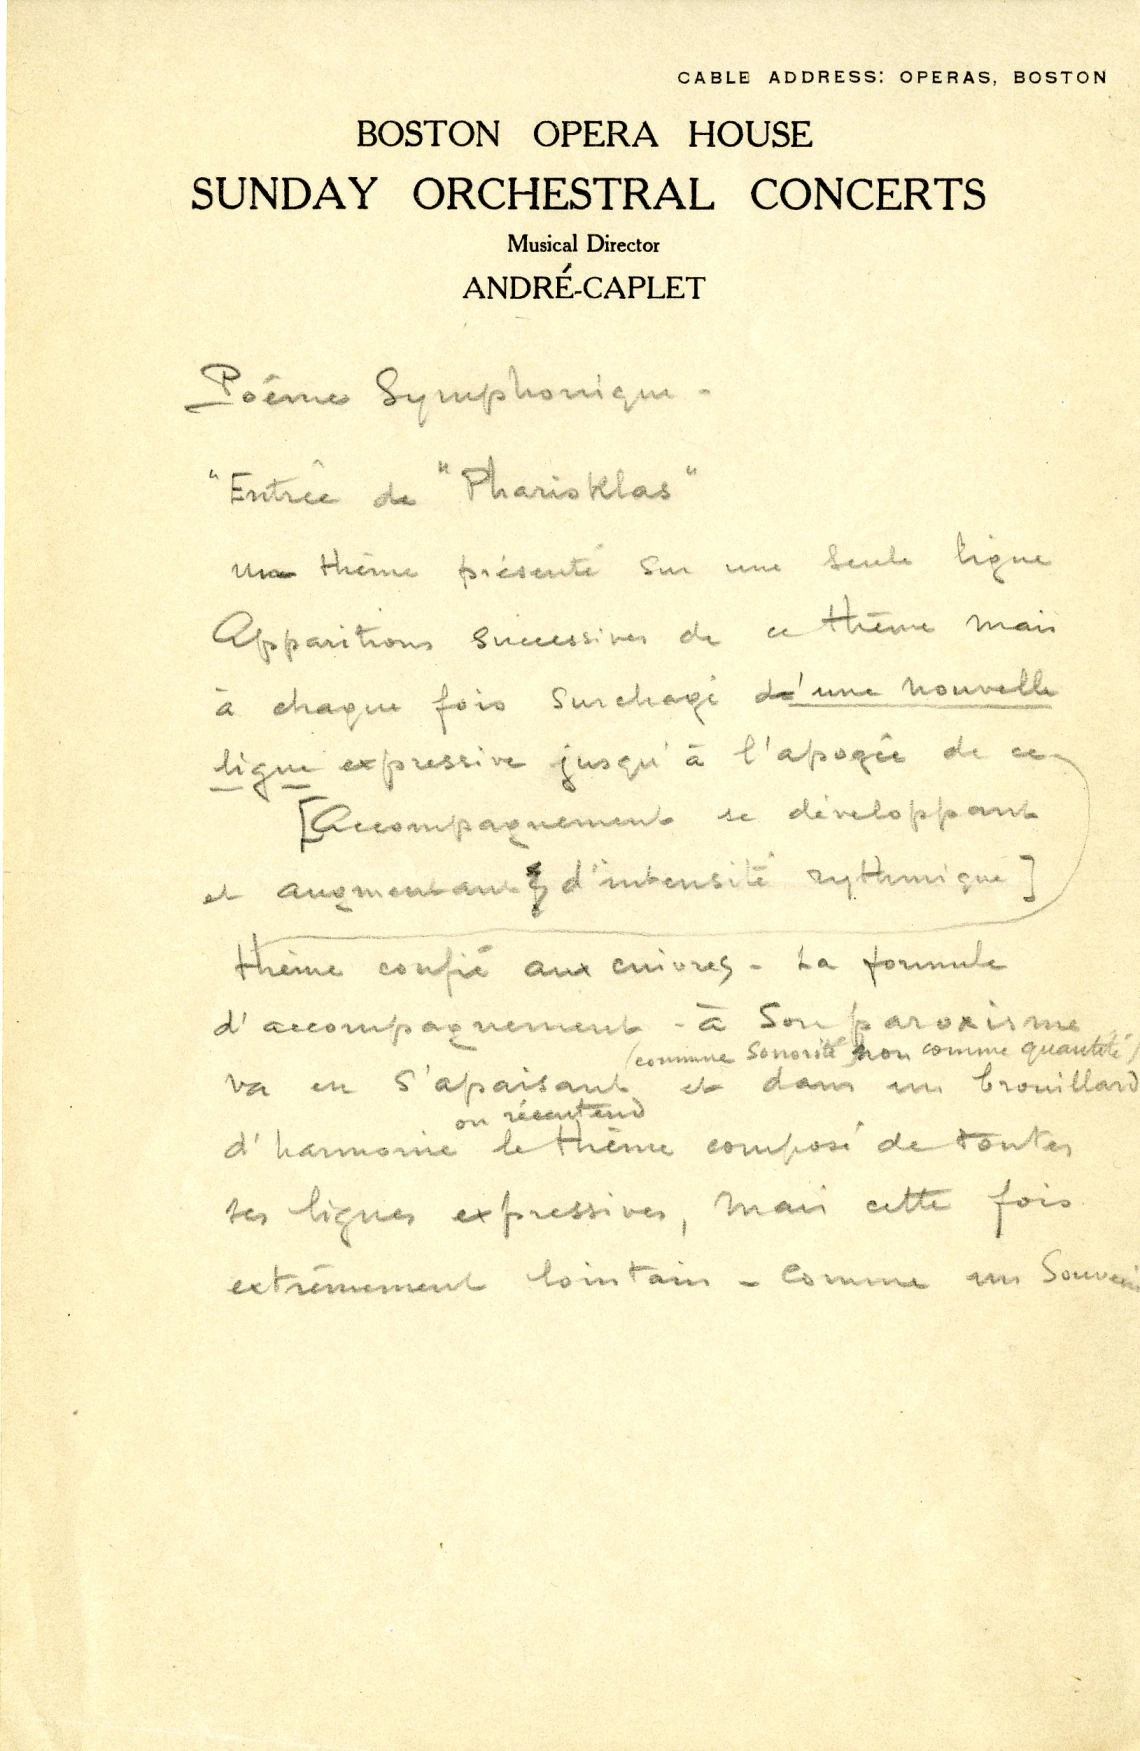 CABLE ADDRESS: OPERAS, BOSTON
BOSTON OPERA HOUSE
SUNDAY ORCHESTRAL CONCERTS
Musical Director
ANDRÉ-CAPLET
Poême Symphonique -
"Entrée de "Pharisklas"
un thême présenté sur une seule ligne
Apparitions successives de ce thême mais
à chaque fois surchagé d'une nouvelle
ligne expressive jusqu'à l'apogée de ce
[Accompagnement se développant
et augmentant d'intensité rythmique]
thême confié aux cuivres - La formule
d'accompagnement - à son paroxisme
(comme sonorité non comme quantité)
va en s'apaisant et dans un brouillard
on réentend
d'harmonie le thême composé de toutes
ses lignes expressives, mais cette fois
extrêmement lointain - comme un souvenir